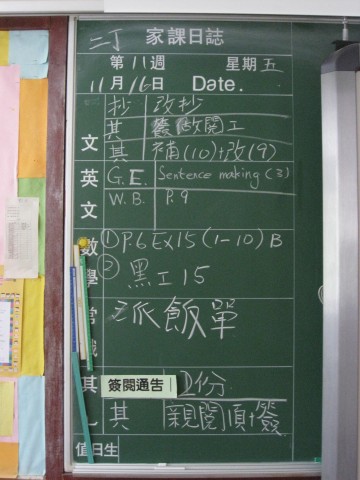 二丁 家課日誌
第11週 星期五
11月16日 Date.
中文 抄 改抄
其 簽做閱工
其 補(10)+改(9)
英文 G.E. Sentence making (3)
W.B. P.9
數學 ① P.6 Ex15 (1-10) B
② 黑工15
常識 派飯單
其 簽閱通告 2份
其 親閱項+簽
值日生